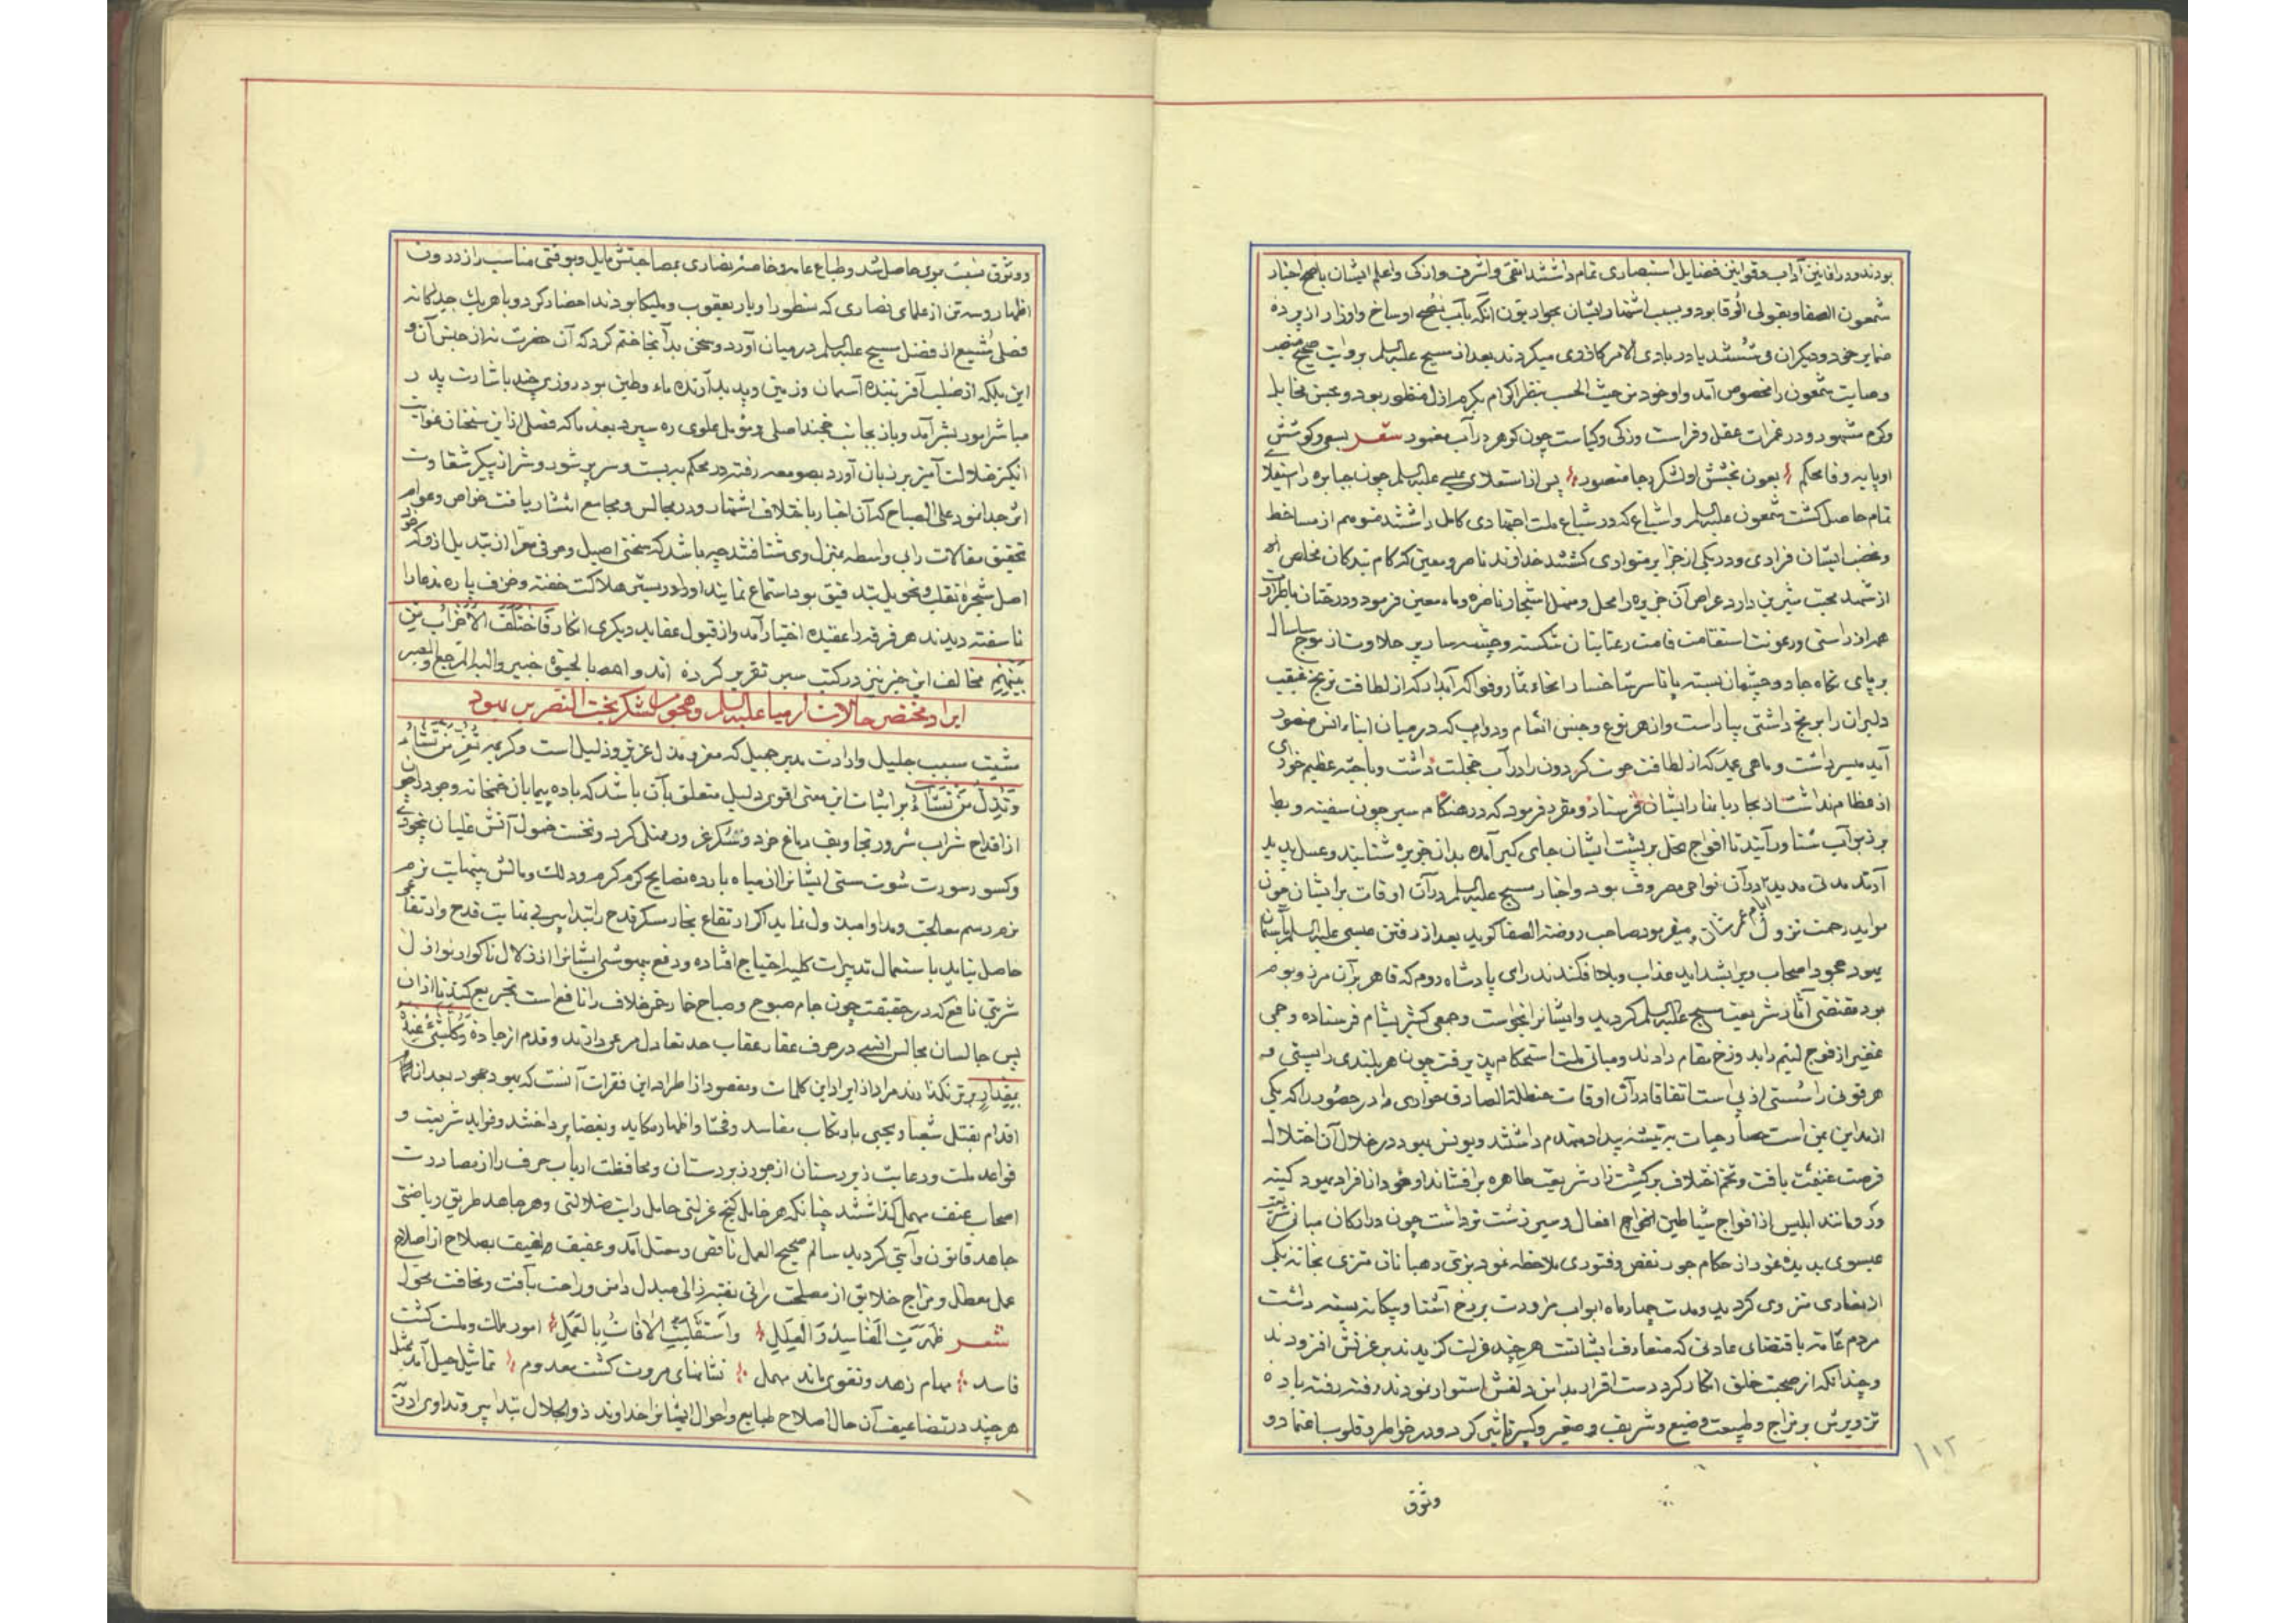 بودند و در افانین آداب و قوانین فضایل استبصاری تمام داشتند اتقی و اشرف و ازکی و اعلم ایشان باصح اخبار
شمعون الصفا و بقولی الوقا بود و بسبب اشتهار ایشان بحواریون آنکه بآب نصح اوساخ و اوزار از پرده
ضمایر خود و دیگران می شستند یا در بادی الامر کاذری میکردند بعد از مسیح علیه السلم بروایت صحیح منصب
وصایت شمعون را مخصوص آمد و او خود من حیث الحسب بنظر اکرام مکرم ازل منظور بود و بحسن مخایل
وکرم مشهور و در غمرات عقل و فراست و زکی و کیاست چون کوهر در آب مغمور شعر بسعی و کوشش
او پایه وفا محکم بعون بخشش او لشکر رجا منصور پس از استعلای عیسی علیه السلم چون جبابره را استیلا
تمام حاصل کشت شمعون علیه السلم و اشیاع که در شیاع ملت اجتهادی کامل داشتند متوهم از مساخط
وغضب ایشان فرادی و در یکی از جزایر متواری کشتند خداوند ناصر و معین که کام بندکان مخلص
از شهد محبت شیرین دارد عراص آن جزیره را محل و منهل اشجار ناضره و ماء معین فرمود و درختان با طراوت
همه از راستی و رعونت استقامت قامت رعنایان شکسته و چشمه سار پر حلاوت از موج سلسال
بر پای نکاه جادو چشمان بسته پا تا سر شاخسار انحاء ثمار و فواکه آبدار که از لطافت ترنج غبغب
دلبران را برنج داشتی بیاراست و از هر نوع و جنس انعام و دواب که در میان ابناء انس متصور
آید میسر داشت و ماهی عید که از لطافت حوت کردون را در آب خجلت داشت و با جثه عظیم خوردی
از عظام نداشت از بحار با بنار ایشان فرستاد و مقرر فرمود که در هنکام سیر چون سفینه و بط
بر زبر آب شناور آیند تا افواج نحل بر پشت ایشان جای کیر آمده بدان جزیره شتابند و عسل پدید
آرند مدتی مدید در آن نواحی مصروف بود و اخبار مسیح علیه السلم در آن اوقات بر ایشان چون
مواید رحمت نزول ایام عمرشان میفرمود صاحب روضة الصفا کوید بعد از رفتن عیسی علیه السلم بآسمان
یهود عجود اصحاب ویرا بشداید عذاب و بلا فکندند رای پادشاه روم که قاهر بر آن مرز و بوم
بود مقتضی آثار شریعت مسیح علیه السلم کردید و ایشانرا بخواست و جمعی کثیر بشام فرستاده و جمی
غفیر از فوج لئیم را بدوزخ مقام دادند و مبانی ملت استحکام پذیرفت چون هر بلندی را پستی و
هر قوتی را سستی از پی است اتفاقا در آن اوقات حنظلة الصادق حواری را در حضور را که یکی
از مداین یمن است حصار حیات به تیشه بیداد منهدم داشتند و یونس یهود در خلال آن اختلال
فرصت غنیمت یافت و تخم اختلاف بر کشت زار شریعت طاهره برافشاند او خود از افراد یهود کینه
ور و مانند ابلیس از افواج شیاطین اخواج افعال و سیر زشت تر داشت چون در ارکان مبانی شریعت
عیسوی بدیده غور از حکام جور نقص و فتوری ملاحظه نمود بزی رهبانان متزی بخانه یکی
از نصاری منزوی کردید و مدت چهار ماه ابواب مراودت بر رخ آشنا و بیکانه بسته داشت
مردم عامه باقتضای عادتی که متعارف ایشانست هر چند عزلت کزیدند بر عزتش افزودند
و چندانکه از صحبت خلق انکار کرد دست اقرار بدامن دلقش استوار نمودند رفته رفته باده
تزویرش بر مزاج و طبیعت وضیع و شریف و صغیر و کبیر تاثیر کرد و در خواطر و قلوب اعتماد و
وثوق
۱۱۲
و وثوق نسبت بوی حاصل شد و طباع عامه و خاصه نصاری بمصاحبتش مایل و بوقتی مناسب راز درون
اظهار و سه تن از علمای نصاری که نسطور او یار یعقوب و ملیکا بودند احضار کرد و با هر یک جداکانه
فصلی شبیع از فضل مسیح علیه السلم در میان آورد و سخن بدآنجا ختم کرد که آن حضرت نه از جنس آن و
این بلکه از صلب آفریننده آسمان و زمین و پدید آرنده ماء و طین بود روزی چند باشارت پدر
مباشر امور بشر آمد و باز بجانب محتد اصلی و موئل علوی ره سپرد بعد ما که فصلی از این سخنان غوایت
انکیز ضلالت آمیز بر زبان آورد بصومعه رفته در محکم به بست و سر پر شور و شر از پیکر شقاوت
اثر جدا نمود علی الصباح که آن اخبار با ختلاف اشتهار و در مجالس و مجامع انتشار یافت خواص و عوام
تحقیق مقالات را بی واسطه بمنزل وی شتافتند چه باشد که سخنی اصیل و حرفی معرا از تبدیل از وکه خود
اصل شجره تقلب و تحویل بتدقیق بود استماع نمایند او را در بستر هلاکت خفته و خزف پاره مدعا را
نا سفته دیدند هر فرقه را عقیده اختیار آمد و از قبول عقاید دیکری انکار فَاخْتَلَفَ الْأَحْزَابُ مِنْ
بَیْنِهِمْ مخالف این خبر نیز در کتب سیر تقریر کرده اند و اهصا بالحیوة خبیر و الیه المرجع و المصیر
ایراد مختصر حالات ارمیا علیه السلم و هجوم لشکر بخت النصر بر یهود
مشیت سبب جلیل و ارادت مدبر جمیل که معز و مذل عزیز و ذلیل است و کریمه تُعِزُّ مَنْ تَشاءُ
وَ تُذِلُّ مَنْ تَشاءُ بر اثبات این معنی اقوی دلیل متعلق بآن باشد که باده پیمایان خمخانه وجود را چون
از اقداح شراب شرور تجاویف دماغ خرد و سکر غرور ممتلی کرد و نخست خمول آتش غلیان نخوت
و کسور سورت شوت ستی ایشانرا از میاه بارده نصایح کرم کرم رود لک و مالش بنهایت نرم
نرم رسم معالجت و مداوا مبذول نماید اکر ارتفاع بخار سکر قدح را تدابیر بی بمثابت قدح و ارتفاع
حاصل نیاید باستعمال تدبیرات کلیه احتیاج افتاده و دفع بیهوشی ایشانرا از زلال ناکوار نوازل
شربتی نافع که در حقیقت چون جام صبوح و صباح خمار خمر خلاف را نافع است تجریع کند تا از آن
پس جالسان مجالس انس در صرف عقار عقاب حد تعادل مرعی دارند و قدم از جاده وَ کُلُّ شَیْءٍ عِنْدَهُ
بِمِقْدارٍ برتر نکذارند مراد از ایراد این کلمات و مقصود از اطراد این فقرات آنست که یهود عجود بعد از آنکه
اقدام بقتل شعیا و یحیی بارتکاب مفاسد و فحشا و اظهار مکاید و بغضا پرداختند و فواید شریعت و
قواعد ملت و رعایت زیردستان از جور زبردستان و محافظت ارباب حرف را از مصادرت
اصحاب عنف مهمل کذاشتند چنانکه هر خامل کنج عزلتی حامل رایت ضلالتی و هر جاهد طریق ریاضتی
جاهد قانون و آیتی کردید سالم صحیح العمل ناقص و معتل آمد و عفیف و لفیف بصلاح از اصلاح
عمل معطل و مزاج خلایق از مصلحت برانی بفتره زالی مبدل و امن و راحت بآفت و مخافت محول
شعر ظَهَرَیَتِ الْمَفَاسِدُ وَ الْعِلَلِ وَ اسْتَقَلَّبَتِ الْآفَاتُ بِالْعَمَلِ امور ملک و ملت کشت
فاسد مهام زهد و تقوی ماند مهمل نشانهای مروت کشت معدوم تماثیل حیل آمد ممثل
هر چند در تضاعیف آن حال اصلاح طبایع و احوال ایشانرا خداوند ذو الجلال تدابیر و تداوی ادرت